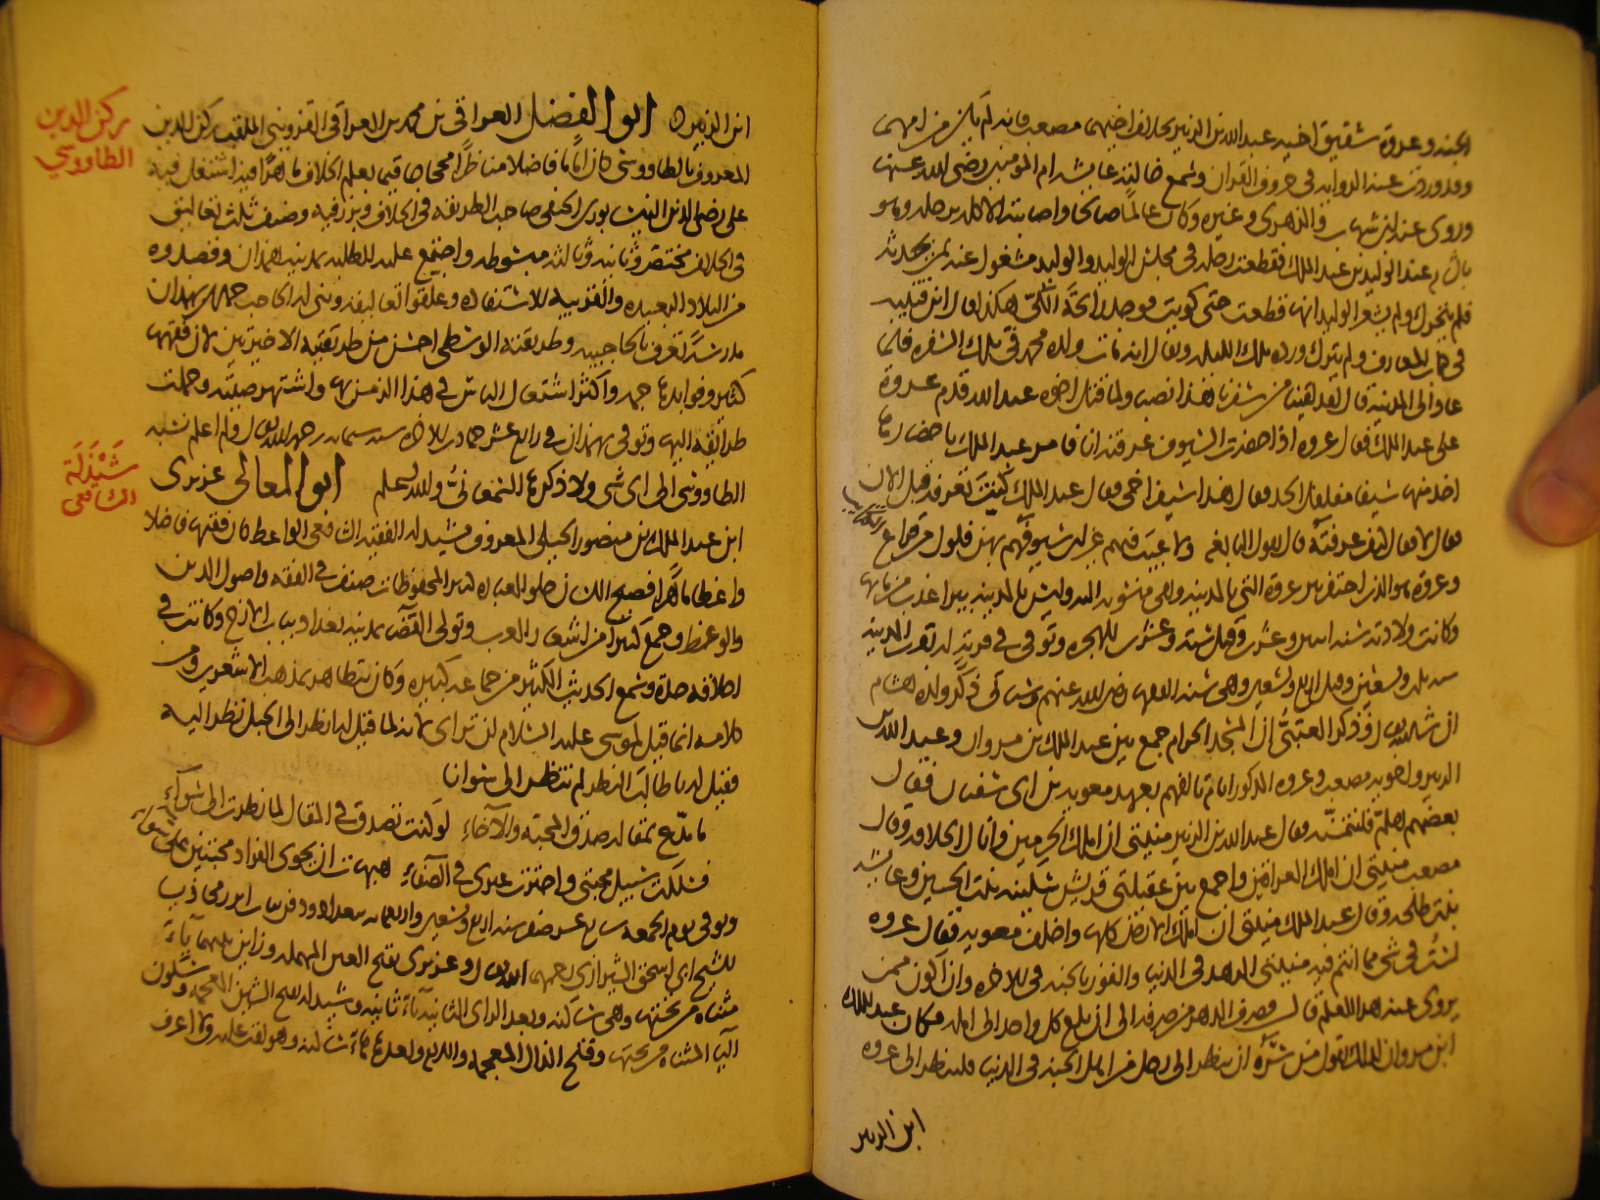 الجنه وعروة شقيق اخيه عبد الله بن الزبير بخلاف اخيهما مصعب فانه لم يكن من امهما
وقد وردت عنه الرواية في حروف القرآن وسمع خالته عايشه ام المومنين رضي الله عنها
وروى عنه ابن شهاب والزهري وغيره وكان عالما صالحا واصابته الاكله في رجله وهو
بالشام عند الوليد بن عبد الملك فقطعت رجله في مجلس الوليد والوليد مشغول عنه بمن يحدثه
فلم يتحرك ولم يشعر الوليد انها قطعت حتى كويت فوجد رايحة الكي هكذا قال ابن قتيبه
في كتاب المعارف ولم يترك ورده تلك الليله ويقال انه مات ولده محمد في تلك السفره فلما
عاد الى المدينه قال لقد لقينا من سفرنا هذا نصبا ولما قتل اخوه عبد الله قدم عروة
على عبد الملك فقال عروه اذا حضرت السيوف عرفته انا فامر عبد الملك باحضارها
اخذ منها سيفا مفلل الحد فقال هذا سيف اخي فقال عبد الملك كنت تعرفه قبل الان
فقال لا فقال كيف عرفته قال بقول النابغه ولا عيب فيهم غير ان سيوفهم بهن فلول من قراع
الكتايب
وعروة هو الذي احتفر بير عروة التي بالمدينه وهي منسوبه اليه وليس بالمدينه بير اعذب من مايها
وكانت ولادته سنه اثنين وعشرين وقيل سته وعشرين للهجره وتوفي في قرية له بقرب المدينه
سنه ثلاث وتسعين وقيل اربع وتسعين وهي سنه الفقها رضي الله عنهم وسياتي ذكر ولده هشام
ان شا الله تعالى وذكر العتبي ان المسجد الحرام جمع بين عبد الملك بن مروان وعبد الله بن
الزبير واخويه مصعب وعروه المذكور ايام تالفهم بعهد معويه بن ابي سفيان فقال
بعضهم هلم فلنتمنه فقال عبد الله بن الزبير منيتي ان املك الحرمين وانال الخلافه وقال
مصعب منيتي ان املك العراقين واجمع بين عقيلتي قريش سكينه بنت الحسين وعايشه
بنت طلحه وقال عبد الملك منيتي ان املك الارض كلها واخلف معويه فقال عروه
لست في شي مما انتم فيه منيتي الزهد في الدنيا والفوز بالجنه في الاخره وان اكون ممن
يروى عنه هذا العلم قال فصرف الدهر من صرفه الى ان بلغ كل واحد الى امله فكان عبد الملك
ابن مروان لذلك يقول من سره ان ينظر الى رجل من اهل الجنه في الدنيا فلينظر الى عروه
ابن الزبير
ابن الزبير ابو الفضل العراقي بن محمد بن العراقي القزويني الملقب ركن الدين
ركن الدين
الطاووسي
المعروف بالطاووسي كان اماما فاضلا مناظرا محجاجا قيما بعلم الخلاف ماهرا فيه اشتغل فيه
على رضي الدين النيسابوري الحنفي صاحب الطريقه في الخلاف وبرز فيه وصنف ثلث تعاليق
في الخلاف مختصرة وثانيه وثالثه مبسوطه واجتمع عليه الطلبه بمدينه همدان وقصدوه
من البلاد البعيده والقريبه للاستفاده وعلقوا تعاليقه وبنى له الحاجب جمال بهمدان
مدرسة تعرف بالحاجبيه وطريقته الوسطى احسن من طريقتيه الاخيرتين لان فقهها
كثير وفوايدها جمه واكثر اشتغال الناس في هذا الزمن بها واشتهر صيته وحملت
طرايقه اليها وتوفي بهمدان في رابع عشر جمادى الاخره سنه ستمايه رحمه الله تعالى ولم اعلم نسبه
الطاووسي الى اي شي ولا ذكرها السمعاني والله اعلم ابو المعالي عزيزي
شيذلة
الشافعي
ابن عبد الملك بن منصور الجيلي المعروف بشيذله الفقيه الشافعي الواعظ كان فقيها فاضلا
واعظا ماهرا فصيح اللسان حلو العباره كثير المحفوظات صنف في الفقه واصول الدين
والوعظ وجمع كثيرا من اشعار العرب وتولى القضا بمدينه بغداد بباب الازج وكانت في
اخلاقه حدة وسمع الحديث الكثير من جماعه كثيره وكان يتظاهر بمذهب الاشعري ومن
كلامه انما قيل لموسى عليه السلام لن تراني لانه لما قيل له انظر الى الجبل نظر اليه
فقيل له يا طالب النظر لم تنظر الى سوانا
يا مدع بمقاله صدق المحبة والآخاء لو كنت تصدق في المقال لما نظرت الى سواءي
فسلكت سبيل محبتي واخترت غيري في الصفاء هيهات ان يحوي الفواد محبتين على سواء
وتوفي يوم الجمعه سابع عشر صفر سنه اربع وتسعين واربعمايه ببغداد ودفن بباب ابرز محاذيا
للشيخ ابي اسحق الشيرازي رحمهما الله تعالى وعزيزي بفتح العين المهمله وزايين بينهما ياء
مثناه من تحتها وهي ساكنه وبعد الزاي الثانيه ياء ثانيه وشيذله بفتح الشين المعجمه وسكون
اليا المثناه من تحتها وفتح الذال المعجمه واللام وبعدها هاء ساكنه وهو لقب عليه ولا اعرف